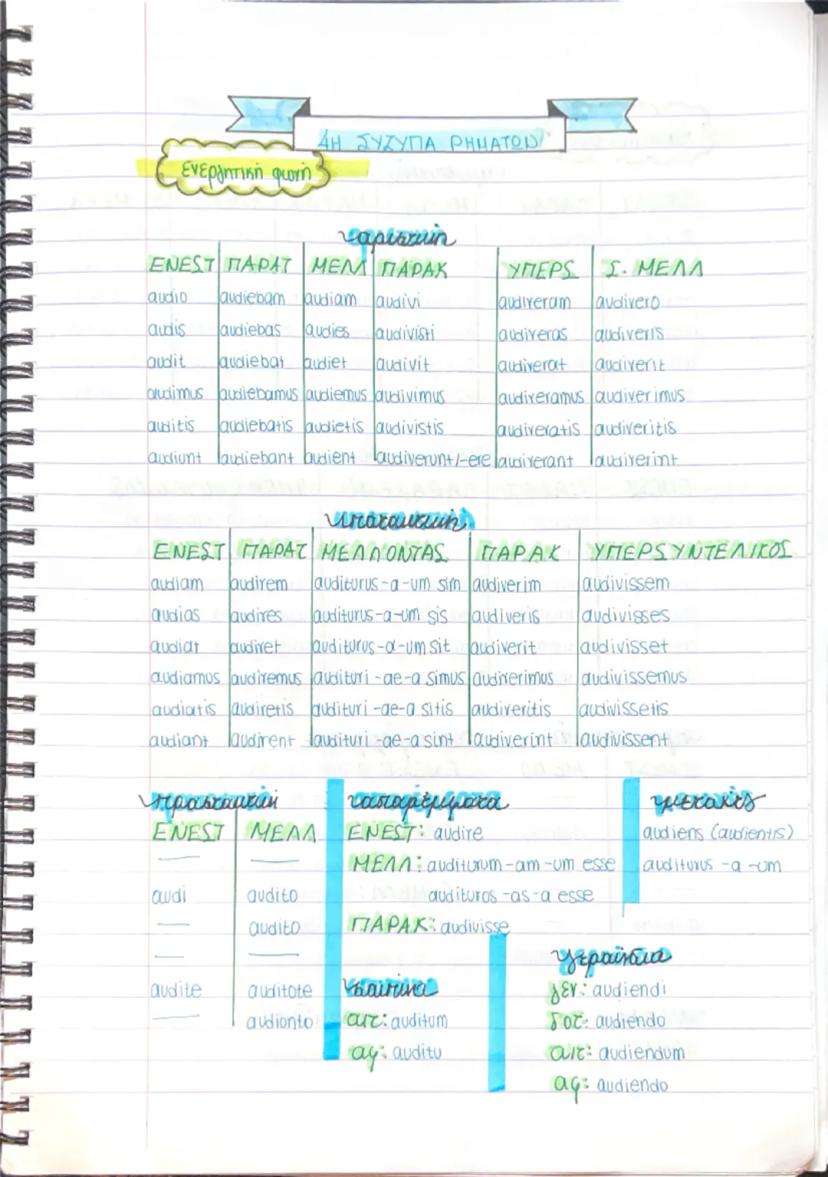 4Η ΣΥΖΥΓΙΑ ΡΗΜΑΤΩΝ
ενεργητική φωνή
οριστική
ΕΝΕΣΤ ΠΑΡΑΤ ΜΕΛΛ ΠΑΡΑΚ ΥΠΕΡΣ Σ. ΜΕΛΛ
audio audiebam audiam audivi audiveram audivero
audis audiebas audies audivisti audiveras audiveris
audit audiebat audiet audivit audiverat audiverit
audimus audiebamus audiemus audivimus audiveramus audiverimus
auditis audiebatis audietis audivistis audiveratis audiveritis
audiunt audiebant audient audiverunt/-ere audiverant audiverint
υποτακτική
ΕΝΕΣΤ ΠΑΡΑΤ ΜΕΛΛΟΝΤΑΣ ΠΑΡΑΚ ΥΠΕΡΣΥΝΤΕΛΙΚΟΣ
audiam audirem auditurus-a-um sim audiverim audivissem
audias audires auditurus-a-um sis audiveris audivisses
audiat audiret auditurus-a-um sit audiverit audivisset
audiamus audiremus audituri -ae-a simus audiverimus audivissemus
audiatis audiretis audituri -ae-a sitis audiveritis audivissetis
audiant audirent audituri -ae-a sint audiverint audivissent
προστακτική
ΕΝΕΣΤ ΜΕΛΛ
— —
audi audito
— audito
— —
audite auditote
— audionto
απαρέμφατα
ΕΝΕΣΤ: audire
ΜΕΛΛ: auditurum -am -um esse
audituros -as-a esse
ΠΑΡΑΚ: audivisse
μετοχές
audiens (audientis)
auditurus -a -um
σουπίνο
αιτ: auditum
αφ: auditu
γερούνδιο
γεν: audiendi
δοτ: audiendo
αιτ: audiendum
αφ: audiendo